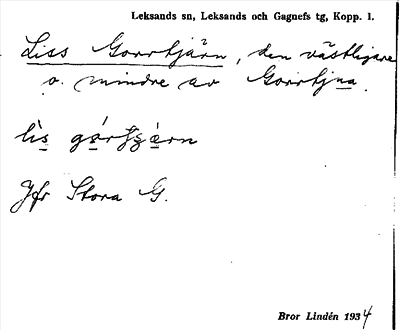 Leksands sn, Leksands och Gagnefs tg, Kopp. l.
Liss Gorrtjärn, den västligare
o. mindre av Gorrtjna.
Jfr Stora G.
Bror Lindén 1934